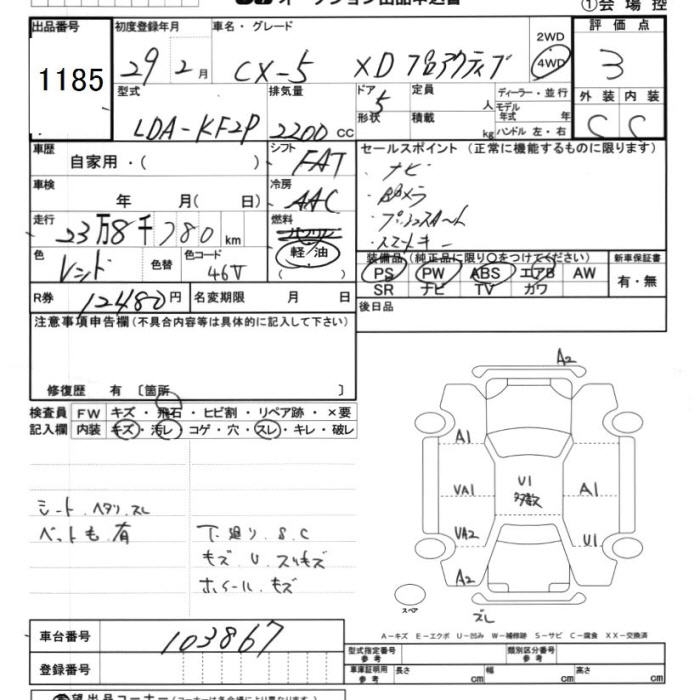 オークション出品申込書
①会場控
出品番号 初度登録年月 車名・グレード 2WD 4WD 評価点
1185 29年2月 CX-5 XD プロアクティブ 3
型式 排気量 ドア 定員 人 ディーラー・並行 外装 内装
LDA-KF2P 2200 CC 5 形状 積載 kg モデル年式 年 ハンドル 左・右 C C
車歴 自家用・( ) シフト FAT セールスポイント (正常に機能するものに限ります)
車検 年 月( 日) 冷房 AAC ・ナビ
・Bカメラ
走行 23万8千780km 燃料 ガソリン 軽/油 ・プッシュスタート
・スマートキー
色 レッド 色替 色コード 46V 装備品(純正品に限り○をつけてください) 新車保証書
PS PW ABS エアB AW 有・無
SR ナビ TV カワ
R券 12480円 名変期限 月 日 後日品
注意事項申告欄(不具合内容等は具体的に記入して下さい)
修復歴 有 〔箇所 〕
検査員 FW キズ・飛石・ヒビ割・リペア跡・×要
記入欄 内装 キズ・汚レ・コゲ・穴・スレ・キレ・破レ
シート、ヘタリ、スレ
ペット毛、有
下廻り、S.C
キズ、U、スリキズ
ホイール、キズ
A2
A1
VA1
U1
多数
A1
VA2
U1
A2
スペア
ズレ
A-キズ E-エクボ U-凹み W-補修跡 S-サビ C-腐食 XX-交換済
車台番号 103867 型式指定番号 参考 類別区分番号 参考
登録番号 車庫証明用 参考 長さ cm 幅 cm 高さ cm